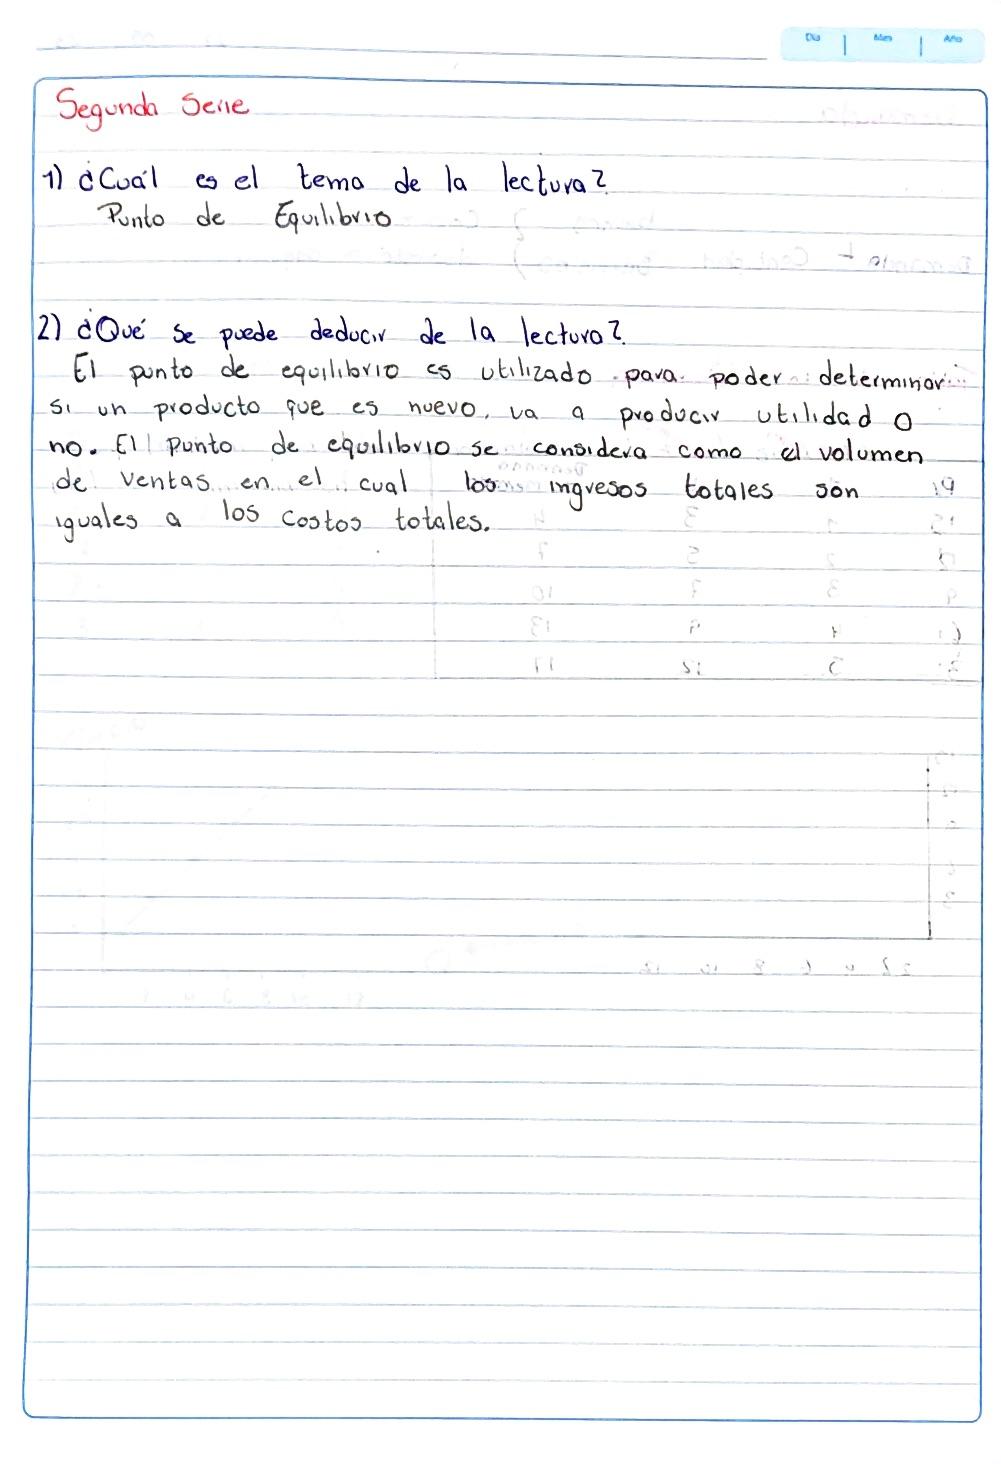 Dia | Mes | Año
Segunda Serie
1) ¿Cuál es el tema de la lectura?
Punto de Equilibrio
2) ¿Qué se puede deducir de la lectura?
El punto de equilibrio es utilizado para poder determinar
si un producto que es nuevo, va a producir utilidad o
no. El punto de equilibrio se considera como el volumen
de ventas en el cual los ingresos totales son
iguales a los costos totales.